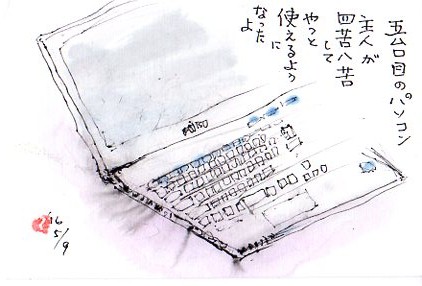 五台目のパソコン
主人が
四苦八苦
して
やっと
使えるよう
に
なった
よ
'16
5/9